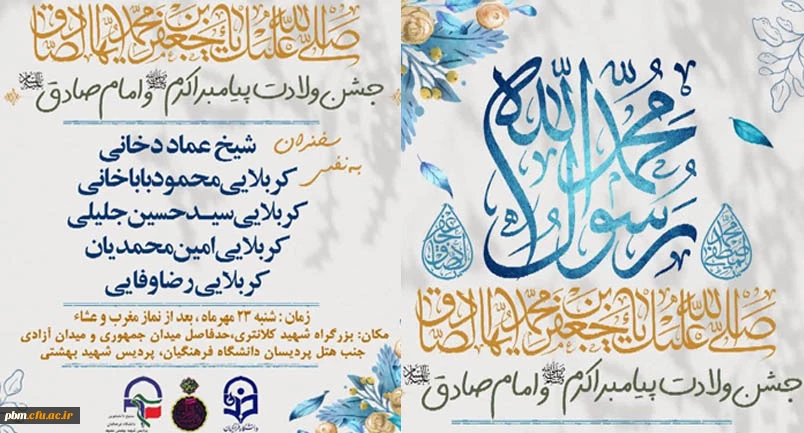 محمد رسول الله
صلی الله علیک یا جعفر بن محمد ایها الصادق
جشن ولادت پیامبر اکرم ﷺ و امام صادق علیه‌السلام
صلی الله علیک یا جعفر بن محمد ایها الصادق
جشن ولادت پیامبر اکرم ﷺ و امام صادق علیه‌السلام
سخنران
شیخ عماد دخانی
به نفس
کربلایی محمود باباخانی
کربلایی سید حسین جلیلی
کربلایی امین محمدیان
کربلایی رضا وفایی
زمان : شنبه ۲۳ مهرماه ، بعد از نماز مغرب و عشاء
مکان: بزرگراه شهید کلانتری،حدفاصل میدان جمهوری و میدان آزادی
جنب هتل پردیسان دانشگاه فرهنگیان، پردیس شهید بهشتی
دانشگاه فرهنگیان
pbm.cfu.ac.ir